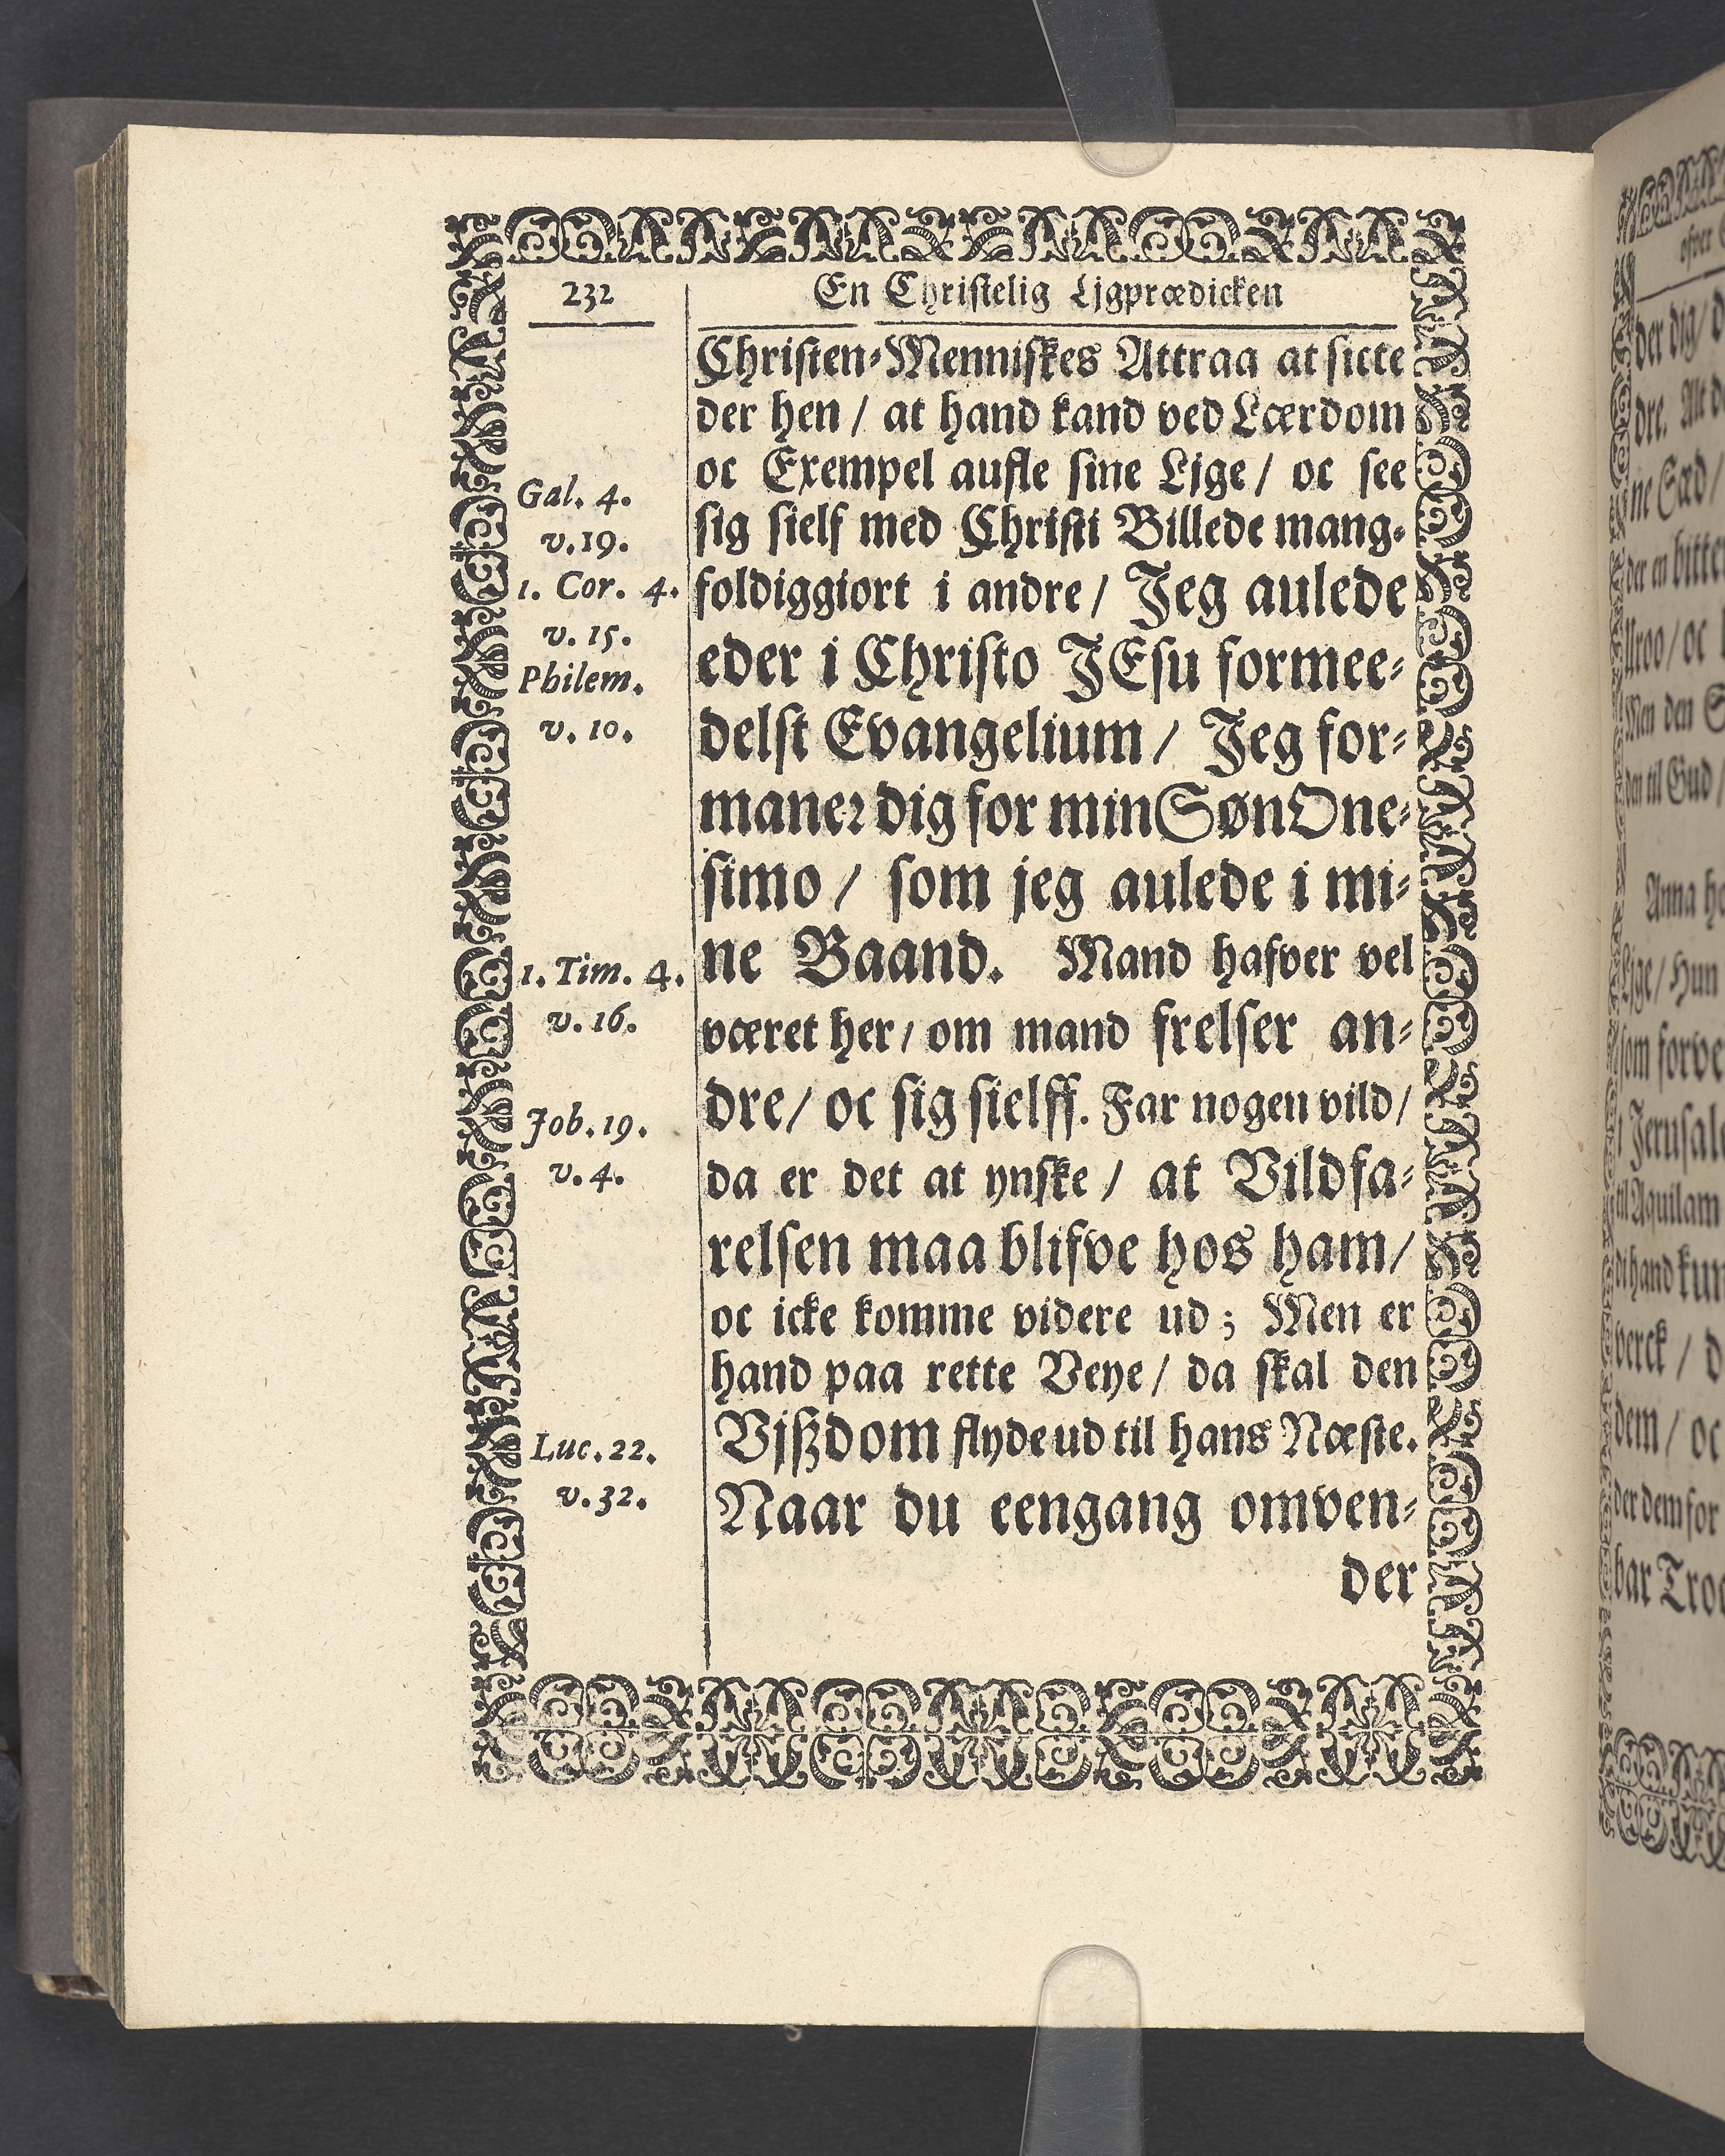 232
En Christelig Ljgprædicken
Christen-Menniskes Attraa at sicte
der hen / at hand kand ved Lærdom
oc Exempel aufle sine Ljge / oc see
sig sielf med Christi Billede mang-
foldiggiort i andre / Jeg aulede
eder i Christo JEsu formee-
delst Evangelium / Jeg for-
maner dig for min Søn One-
simo / som jeg aulede i mi-
ne Baand. Mand hafver vel
været her / om mand frelser an-
dre / oc sig sielff. Far nogen vild /
da er det at ynske / at Vildfa-
relsen maa blifve hos ham /
oc icke komme videre ud ; Men er
hand paa rette Veye / da skal den
Vjßdom flyde ud til hans Næste.
Naar du eengang omven-
der
Gal. 4.
v. 19.
1. Cor. 4.
v. 15.
Philem.
v. 10.
1. Tim. 4.
v. 16.
Job. 19.
v. 4.
Luc. 22.
v. 32.
der dig /
dre.
ne Sæd /
der en bitter
Men den
Anna
Ljge / Hun
som forve
Jerusale
til Aquilam
kun
verck / d
dem / oc
der dem for
bar Troe